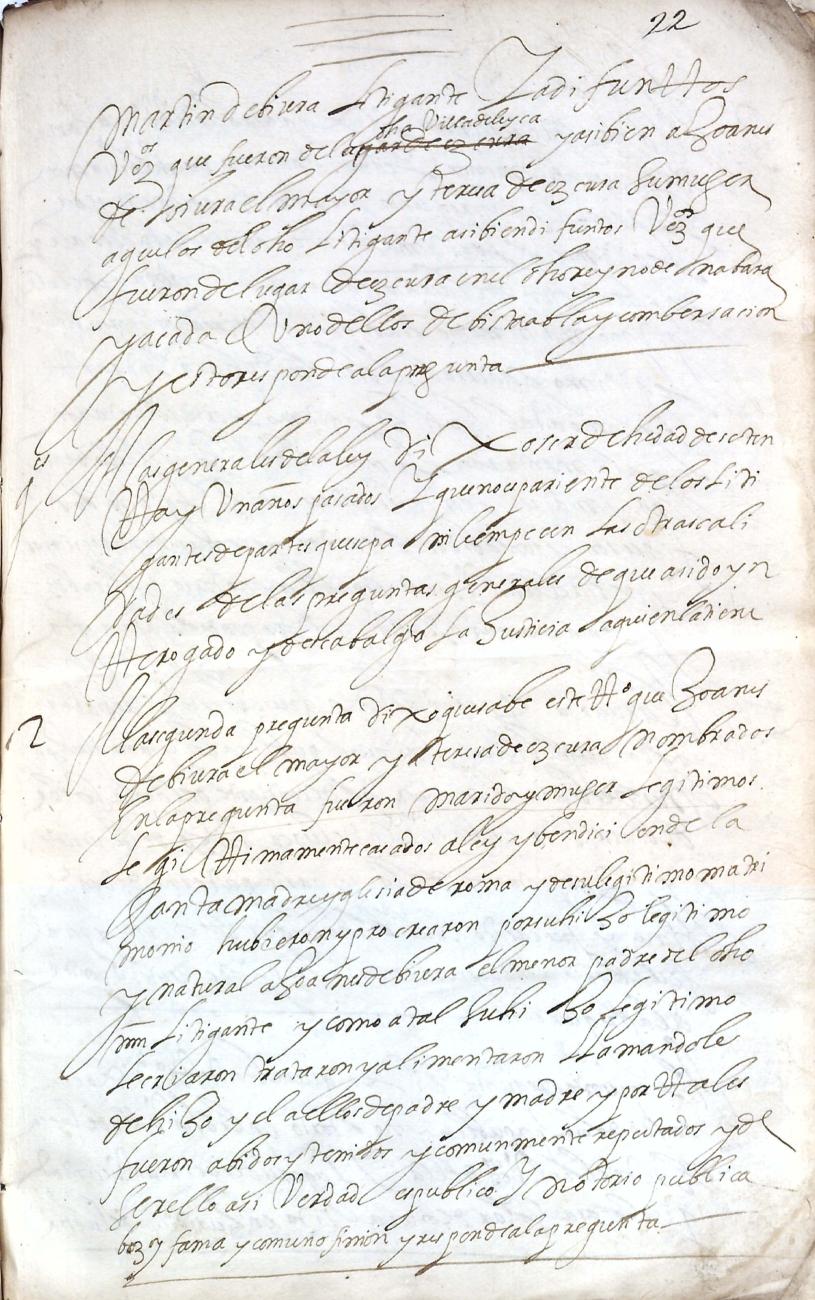 22
Martin de biura Litigante Ya difunttos
Vezos que fueron de la dha Villa de lysca
lugar de ezcura y asibien a Joanes
de biura el mayor y teresa de ezcura su muger
aguelos del dho Litigante asibien di funtos Vezos que
fueron del lugar de ezcura en el dho reyno de nabara
y a cada Uno dellos de bista abla y combersacion
y esto responde a la pregunta
ges
A las generales de la ley Dixo ser de hedad de seten
tta y Un años pasados Y que no es pariente de los Liti
gantes de partes que sepa ni le empecen Las otras cali
dades de las preguntas generales de que a sido yn
tterogado y desea balga La Justicia a quien la tiene
2
A la segunda pregunta dixo que sabe este tto que Joanes
de biura el mayor y teresa de ezcura nombrados
En la pregunta fueron marido y muger Legitimos
Legittimamente casados a ley y bendicion de la
Santa madre yglesia de roma y de su legitimo matri
monio hubieron y procrearon por su hijo legitimo
y natural a Joanes de biura el menor padre del dho
mm Litigante y como a tal Su hijo Legitimo
Le criaron trataron y alimentaron LLamandole
de hijo y el a ellos de padre y madre y por ttales
fueron abidos y tenidos y comunmente repectados y de
Ser ello asi Verdad es publico Y notorio publica
boz y fama y comun o pinion y responde a la pregunta